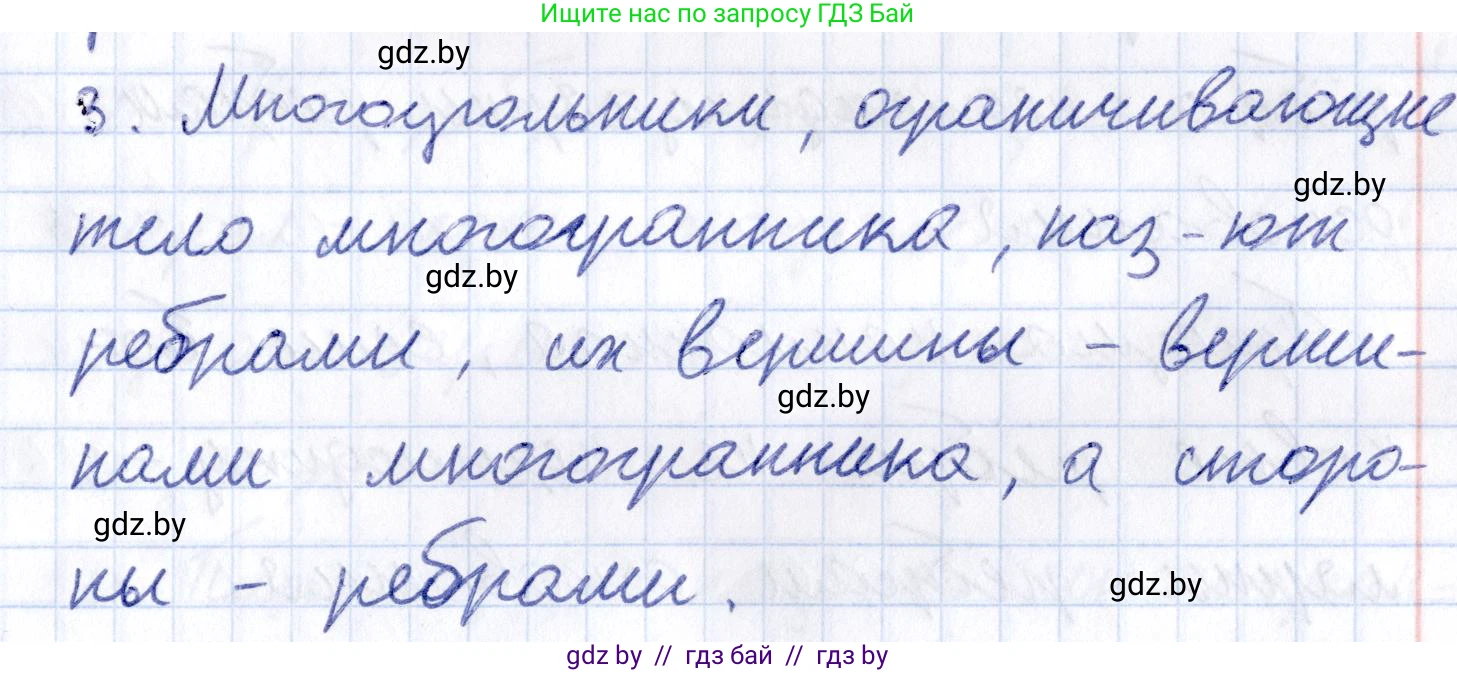 Ищите нас по запросу ГДЗ Бай
gdz.by
3. Многоугольники, ограничивающие
gdz.by
тело многогранника, наз-ют
gdz.by
ребрами, их вершины – верши-
gdz.by
нами многогранника, а сторо-
gdz.by
ны – ребрами.
gdz.by
gdz by // гдз бай // гдз by